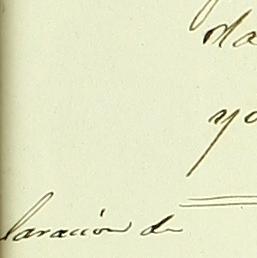 da
yo
laración de